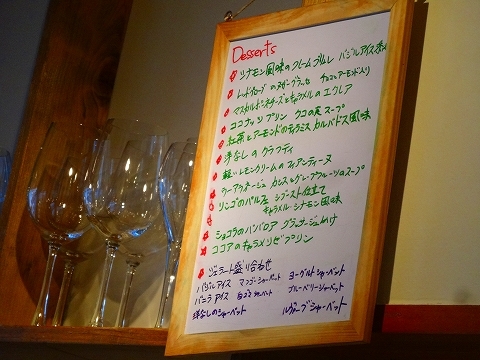 Desserts
シナモン風味のクレームブリュレ バジルアイス添え
レッドキューブのヌガーグラッセ チョコとアーモンド入り
マスカルポーネチーズとキャラメルのエクレア
ココナッツプリン クコの実スープ
紅茶とアーモンドのティラミス カルバドス風味
洋なしのクラフティ
軽いレモンクリームのフィアンティーヌ
ウーアラネージュ カシスとグレープフルーツのスープ
リンゴのパルフェ シブースト仕立て
キャラメルシナモン風味
ショコラのババロア グラッサージュがけ
ココアのキャラメリゼプリン
ジェラート盛り合わせ
バジルアイス マンゴーシャーベット ヨーグルトシャーベット
バニラアイス シャーベット ブルーベリーシャーベット
洋なしのシャーベット ルヴァーブシャーベット